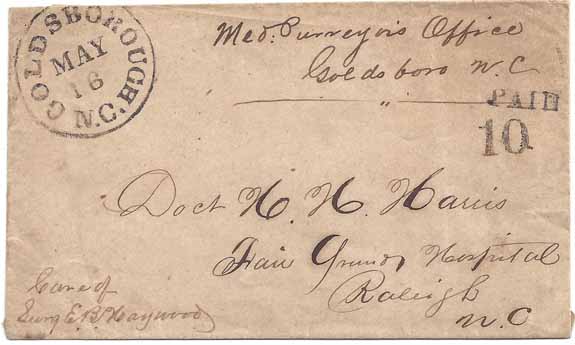 GOLDSBOROUGH. N.C.
MAY
16
Med. Purveyor's Office
Goldsboro N.C
PAID
10
Doct H. H. Harris
Fair Grounds Hospital
Raleigh
N.C
Care of
Surg E. B. Haywood